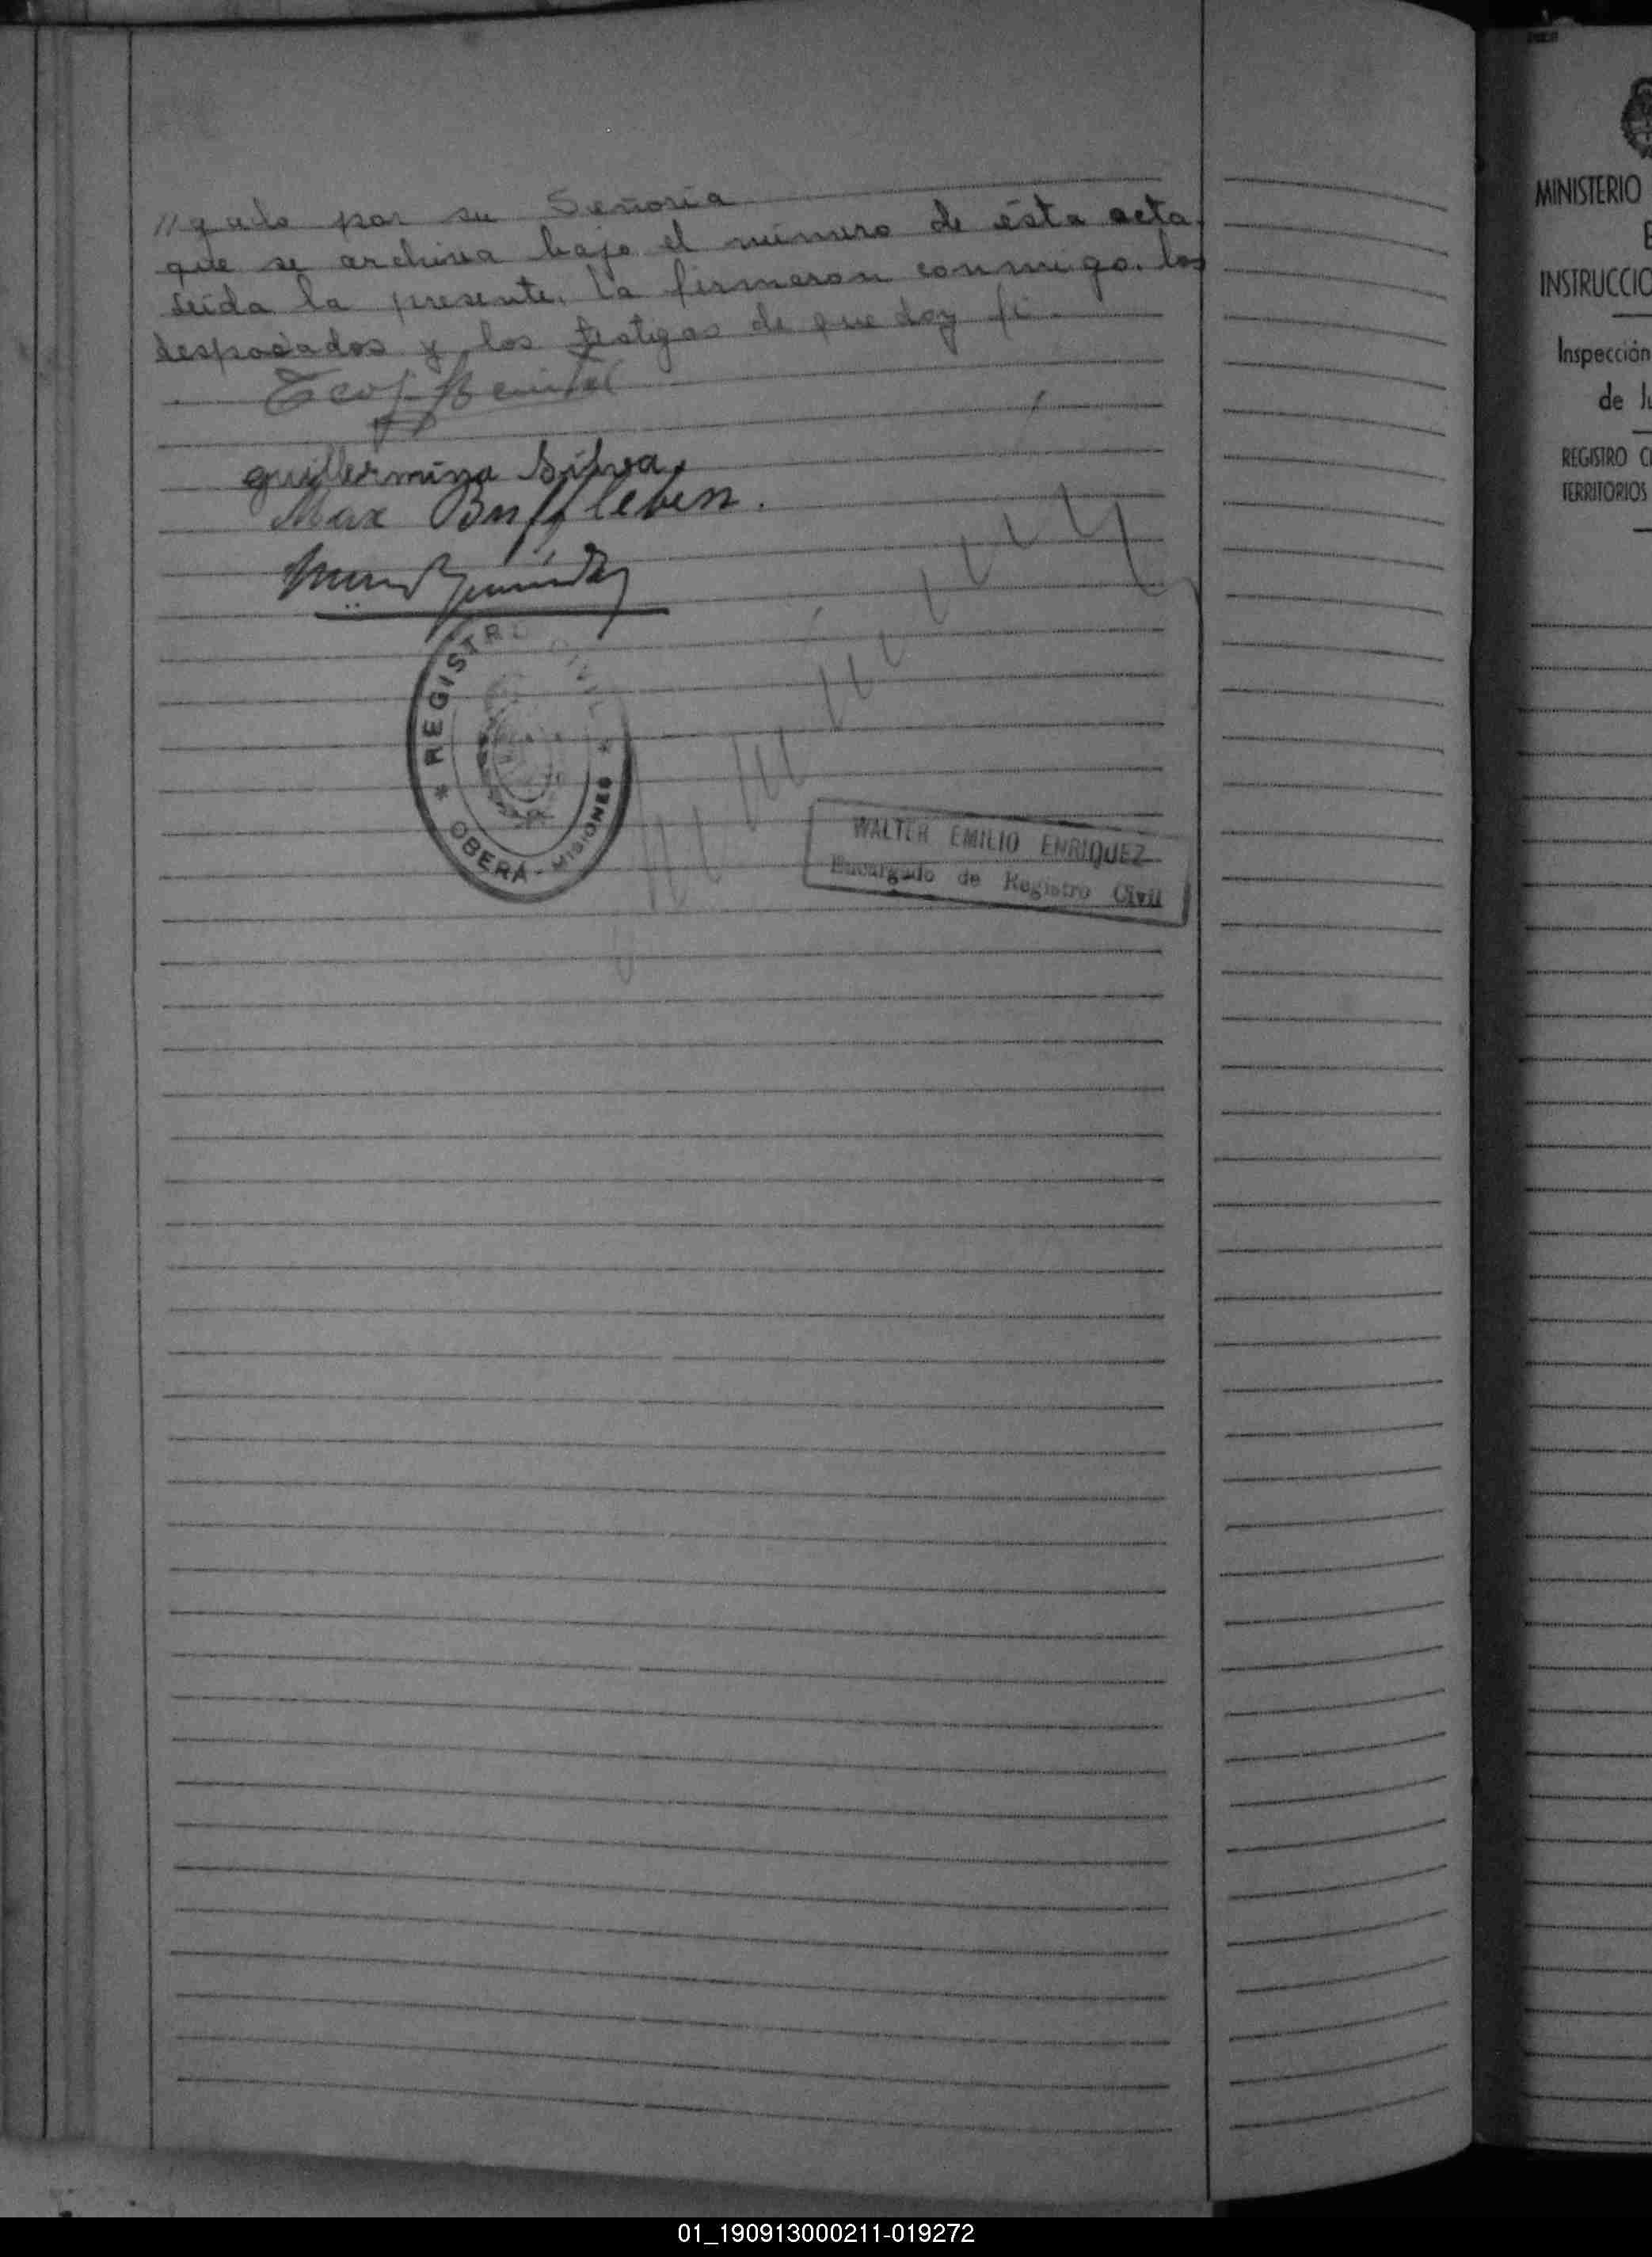 //gado por su Señoría
que se archiva bajo el número de ésta acta.
Leida la presente, la firmaron conmigo, los
desposados y los testigos de que doy fé.
Teof Benitez
guillermina Silva,
Max
REGISTRO CIVIL
OBERÁ - MISIONES
WALTER EMILIO ENRIQUEZ
Encargado de Registro Civil
MINISTERIO
E
INSTRUCCIO
Inspección
de Ju
REGISTRO CI
TERRITORIOS
01_190913000211-019272